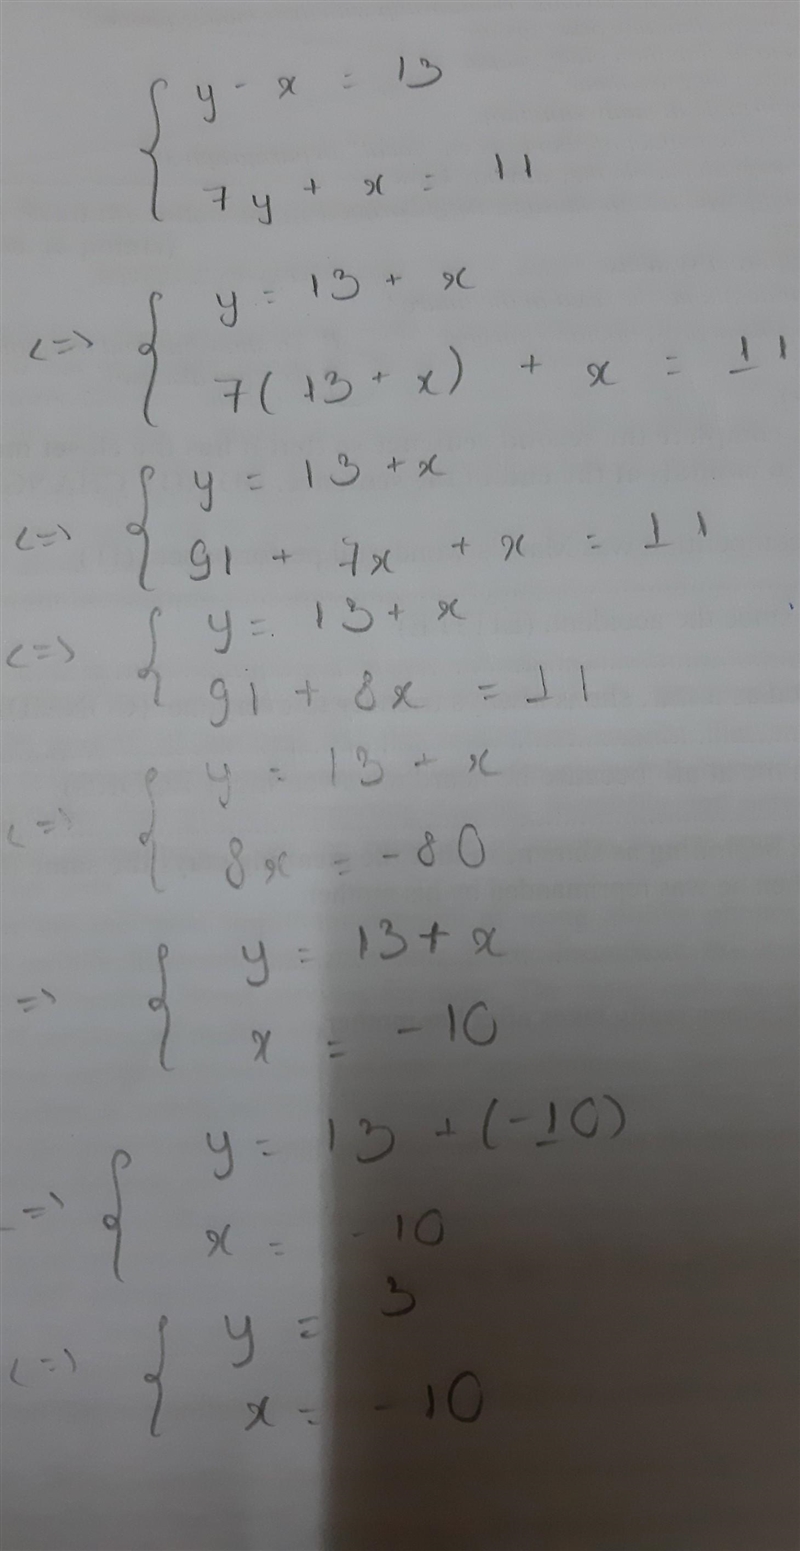 y - x = 13
7y + x = 11
<=> y = 13 + x
7(13 + x) + x = 11
<=> y = 13 + x
91 + 7x + x = 11
<=> y = 13 + x
91 + 8x = 11
<=> y = 13 + x
8x = -80
=> y = 13 + x
x = -10
=> y = 13 + (-10)
x = -10
<=> y = 3
x = -10